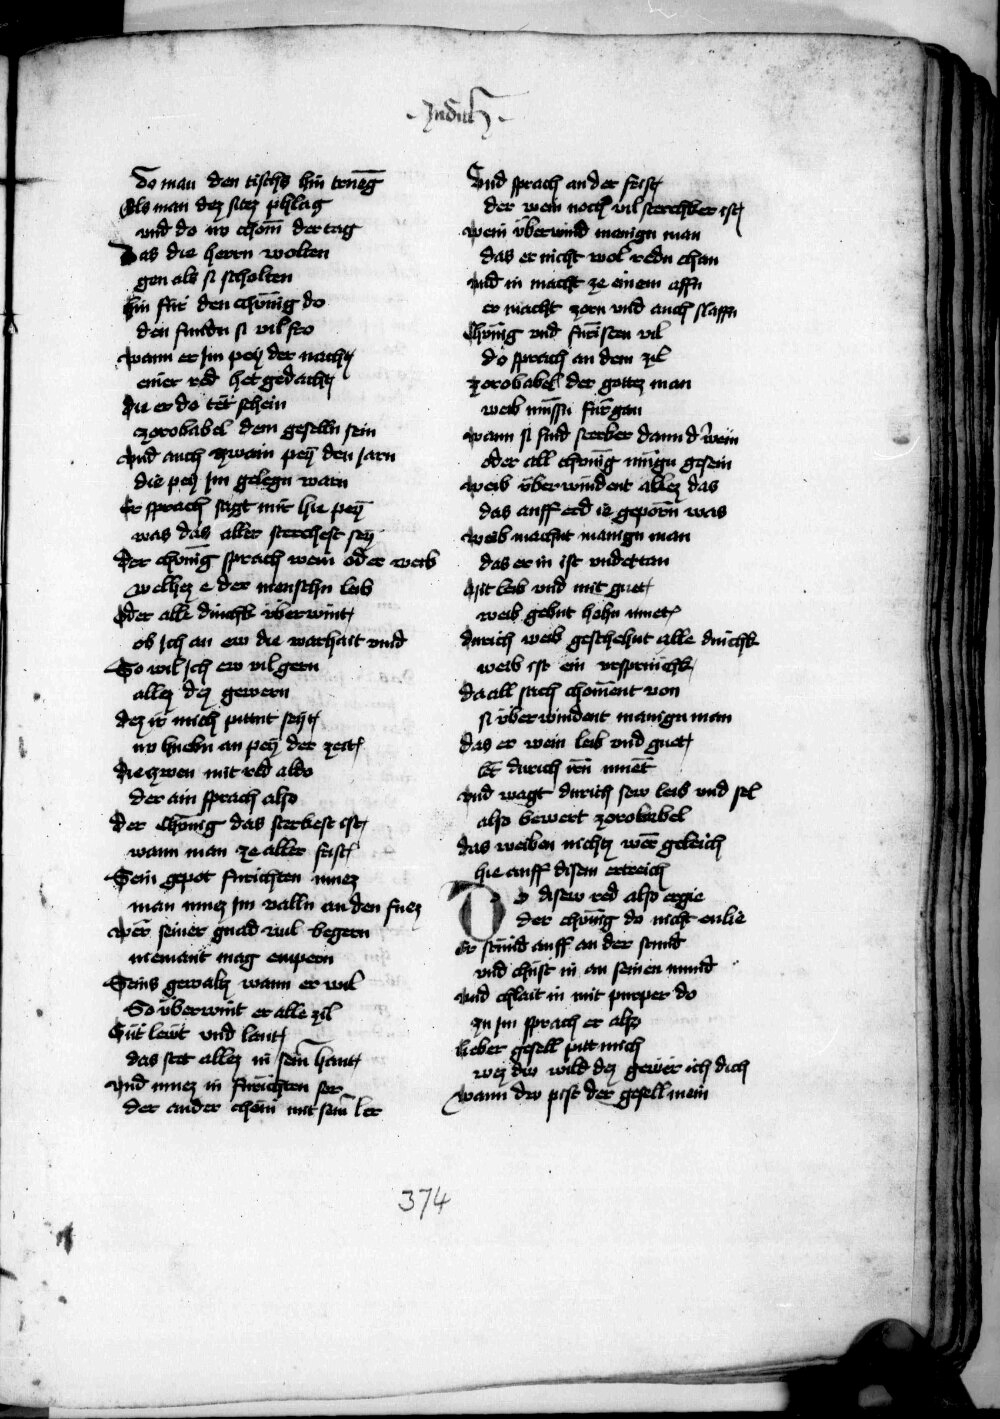 Judith
Do man den tischs hin trueg
Als man dez sitez phlag
vnd do nv chom̄ der tag
Das die herrn wolten
gen als si scholten
hin für den chönig do
den funden si vil fro
wann er Jm pey der nacht
einer red het gedacht
die er do tet schein
zorobabel dem geselln sein
vnd auch zwain pey den Jarn
die pey Jm gelegn warn
Er sprach sagt mir hie pey
was das aller sterchest sey
der chönig sprach wein oder weib
welhez e der menschn leib
Oder alle dinchk überwint
ob Jch an ew die warhait vind
So wil Jch ew vil gern
allez dez gewern
dez ir mich pittent seyt
nv huebn an pey der zeit
die zwen mit red aldo
der ain sprach also
der chönig das sterkest ist
wann man ze aller frist
Sein gepot fürichten muez
man muez Jm valln an den fuez
wer seiner gnad wil begern
niemant mag enpern
Seins gewaltz wann er wil
So überwint er alle zil
Güt lewt vnd lant
das stet allez in seinr hant
vnd muez in fürichten ser
der ander chom mit seinr ler
vnd sprach an der frist
der wein noch vil sterchker ist
wein überwind manign man
das er nicht wol redn chan
vnd in macht ze einem affn
er macht zorn vnd auch slaffn
Chönig vnd füristen vil
do sprach an dem zil
zorobabel der gottez man
weib müssn fürgan
wann si sind sterker dann d' wein
oder all chönig mügn gesein
weib überwindent allez das
das auff erd ie geporn was
weib machnt manign man
das er in ist vndertan
Mit leib vnd mit guet
weib gebnt hohn muet
durich weib geschehnt alle dinchk
weib ist ein vrsprinchk
da all sach choment von
si überwindent manign man
das er wein leib vnd guet
let durich irn muet
vnd wagt durich sew leib vnd sel
also bewert zorobabel
das weiben nichtz wer geleich
hie auff disem ertreich
Do disew red also ergie
der chönig do nicht enlie
Er stuend auff an der stund
vnd chust in an seinen mund
vnd chlait in mit purper do
zu Jm sprach er also
lieber gesell pitt mich
wez dw wild dez gewer ich dich
wann dw pist der gesell mein
374